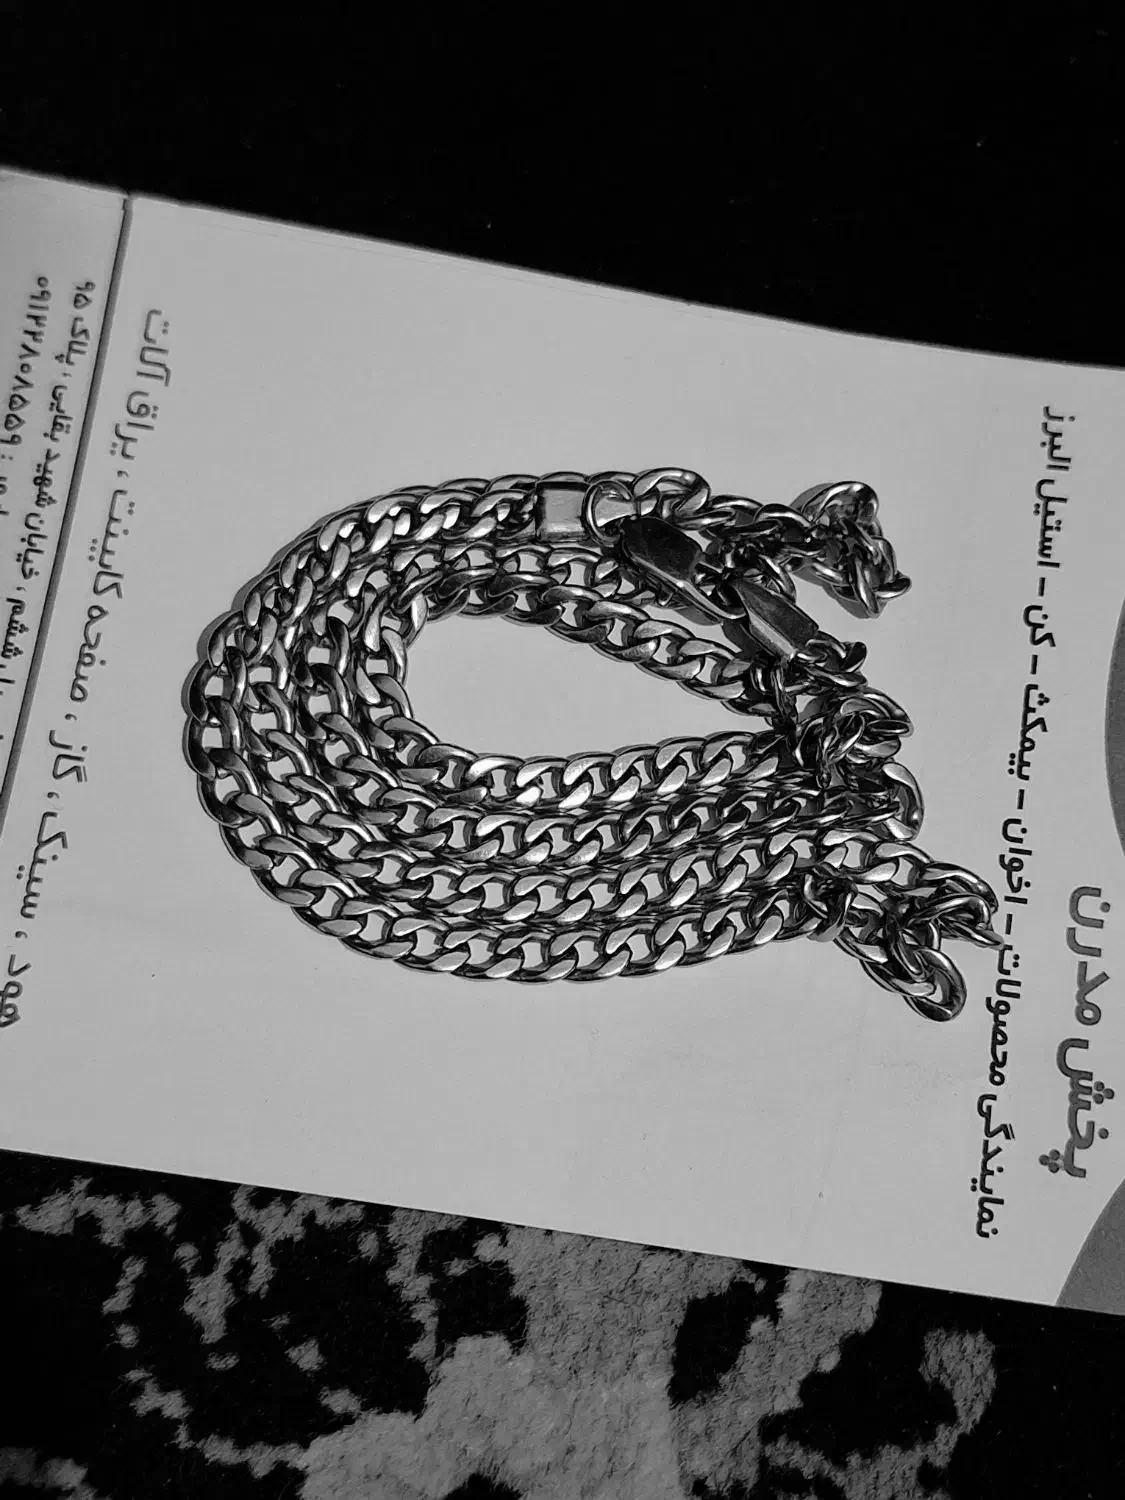 پخش مدرن
نمایندگی محصولات - اخوان - بیمکث - کن - استیل البرز
هود ، سینک ، گاز ، صفحه کابینت ، یراق آلات
ششم ، خیابان شهید بقایی ، پلاک ۹۵
۰۹۱۲۲۸۰۸۵۵۹